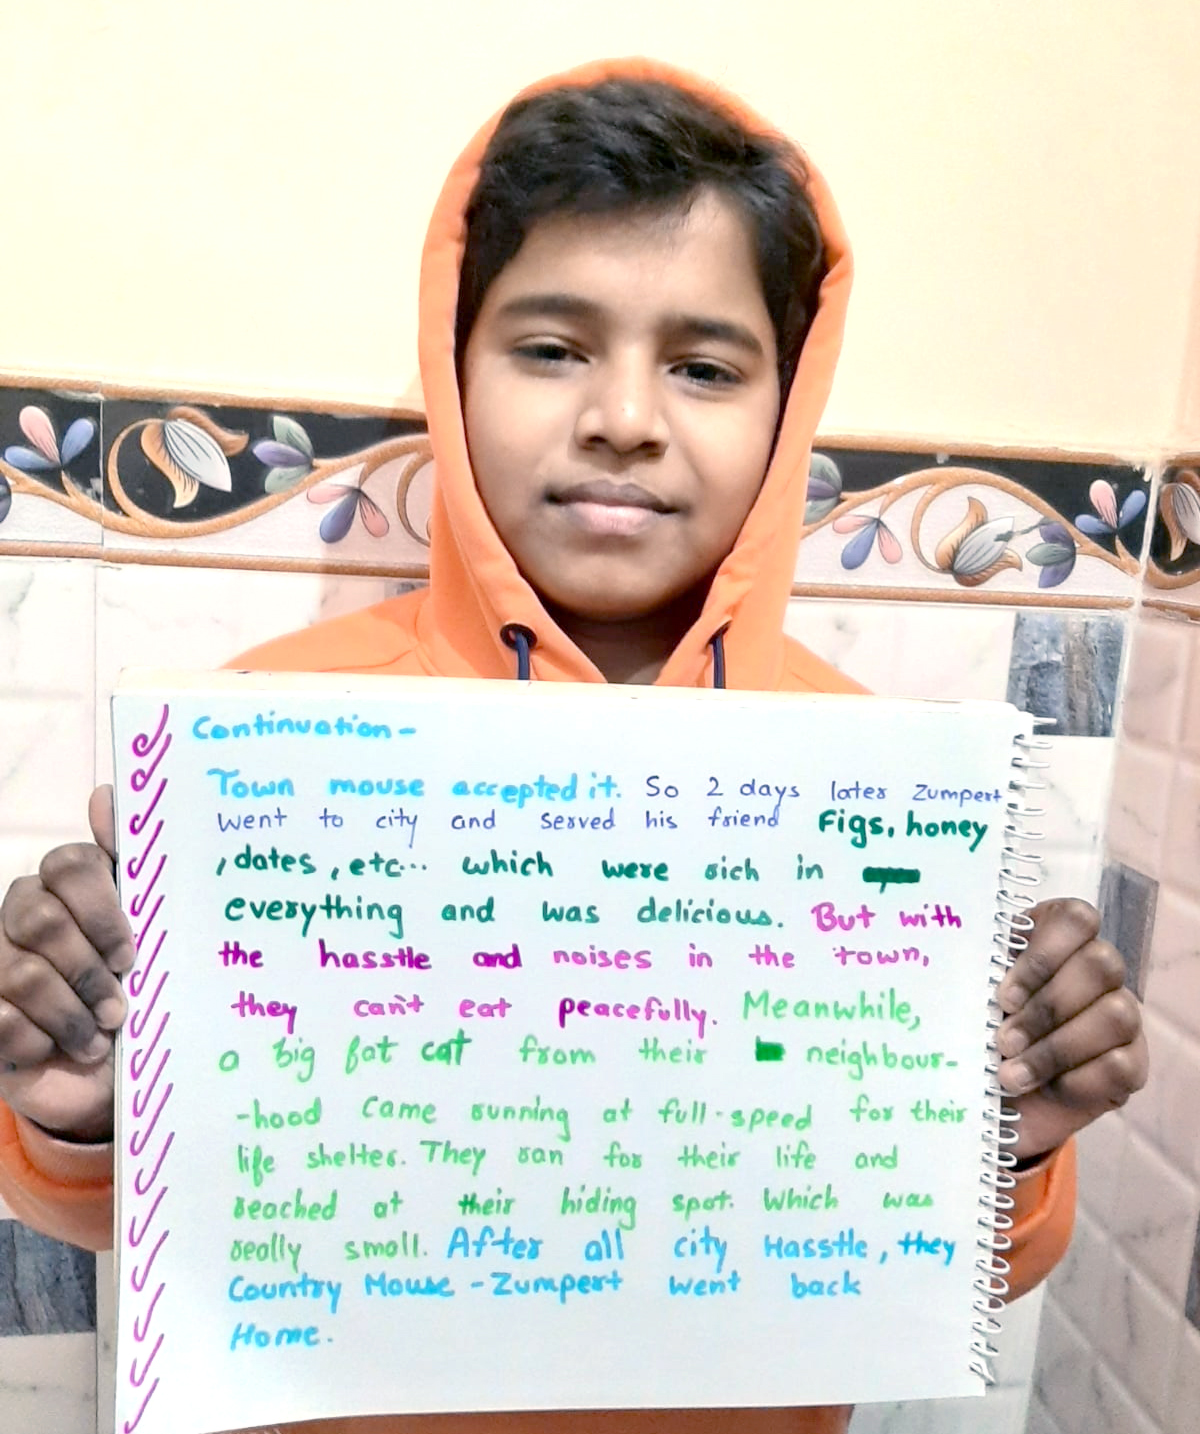 Continuation -
Town mouse accepted it. So 2 days later Zumpert
went to city and served his friend Figs, honey
, dates , etc... which were rich in
everything and was delicious. But with
the hasstle and noises in the town,
they can't eat peacefully. Meanwhile,
a big fat cat from their neighbour-
-hood came running at full-speed for their
life shelter. They ran for their life and
reached at their hiding spot. Which was
really small. After all city Hasstle, they
Country Mouse - Zumpert went back
Home.